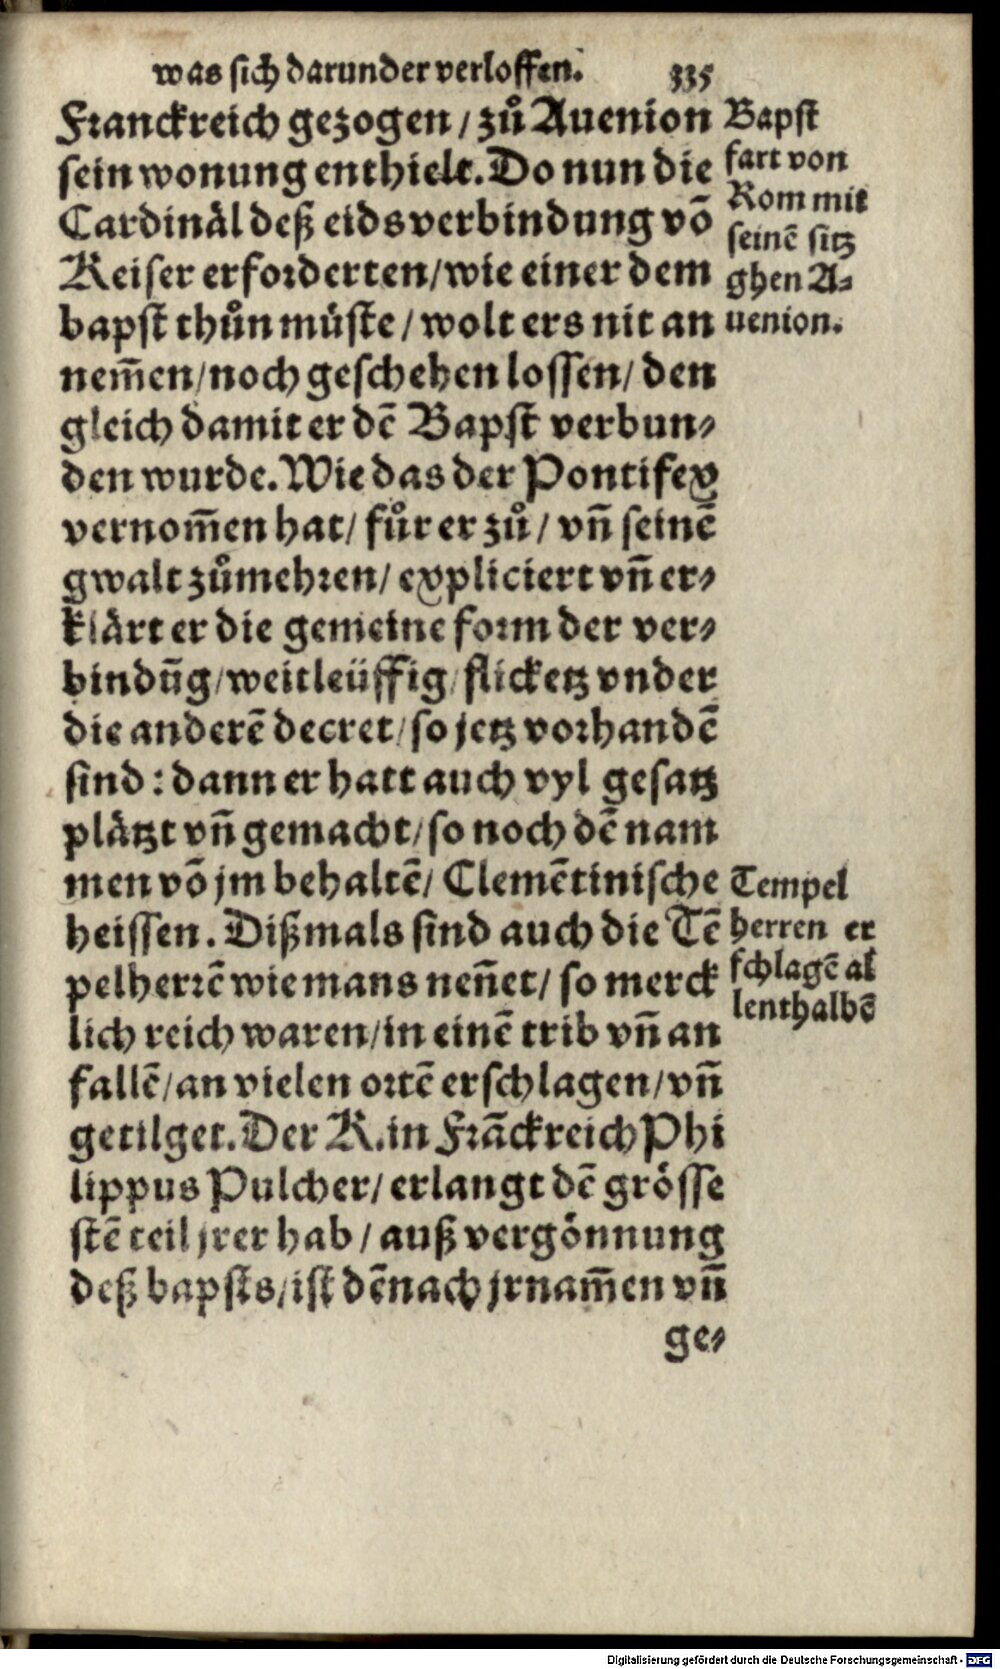 was sich darunder verloffen. 335
Franckreich gezogen / zů Auenion
sein wonung enthielt. Do nun die
Cardinäl deß eids verbindung võ
Keiser erforderten / wie einer dem
bapst thůn müste / wolt ers nit an
nem̃en / noch geschehen lossen / den
gleich damit er dẽ Bapst verbun⸗
den wurde. Wie das der Pontifex
vernom̃en hat / fůr er zů / vñ seinẽ
gwalt zůmehren / expliciert vñ er⸗
klärt er die gemeine form der ver⸗
bindũg / weitleüffig / flicketz vnder
die anderẽ decret / so jetz vorhandẽ
sind : dann er hatt auch vyl gesatz
plätzt vñ gemacht / so noch dẽ nam
men võ jm behaltẽ / Clemẽtinische
heissen. Dißmals sind auch die Tẽ
pelherrẽ wie mans neñet / so merck
lich reich waren / in einẽ trib vñ an
fallẽ / an vielen ortẽ erschlagen / vñ
getilget. Der K. in Frãckreich Phi
lippus Pulcher / erlangt dẽ grösse
stẽ teil jrer hab / auß vergönnung
deß bapsts / ist dẽnach jr nam̃en vñ
ge⸗
Bapst
fart von
Rom mit
seinẽ sitz
ghen A⸗
uenion.
Tempel
herren er
schlagẽ al
lenthalbẽ
Digitalisierung gefördert durch die Deutsche Forschungsgemeinschaft - DFG